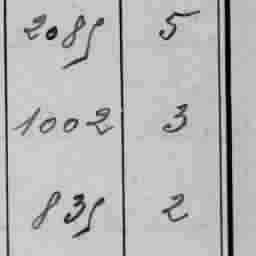 2085 5
1002 3
835 2